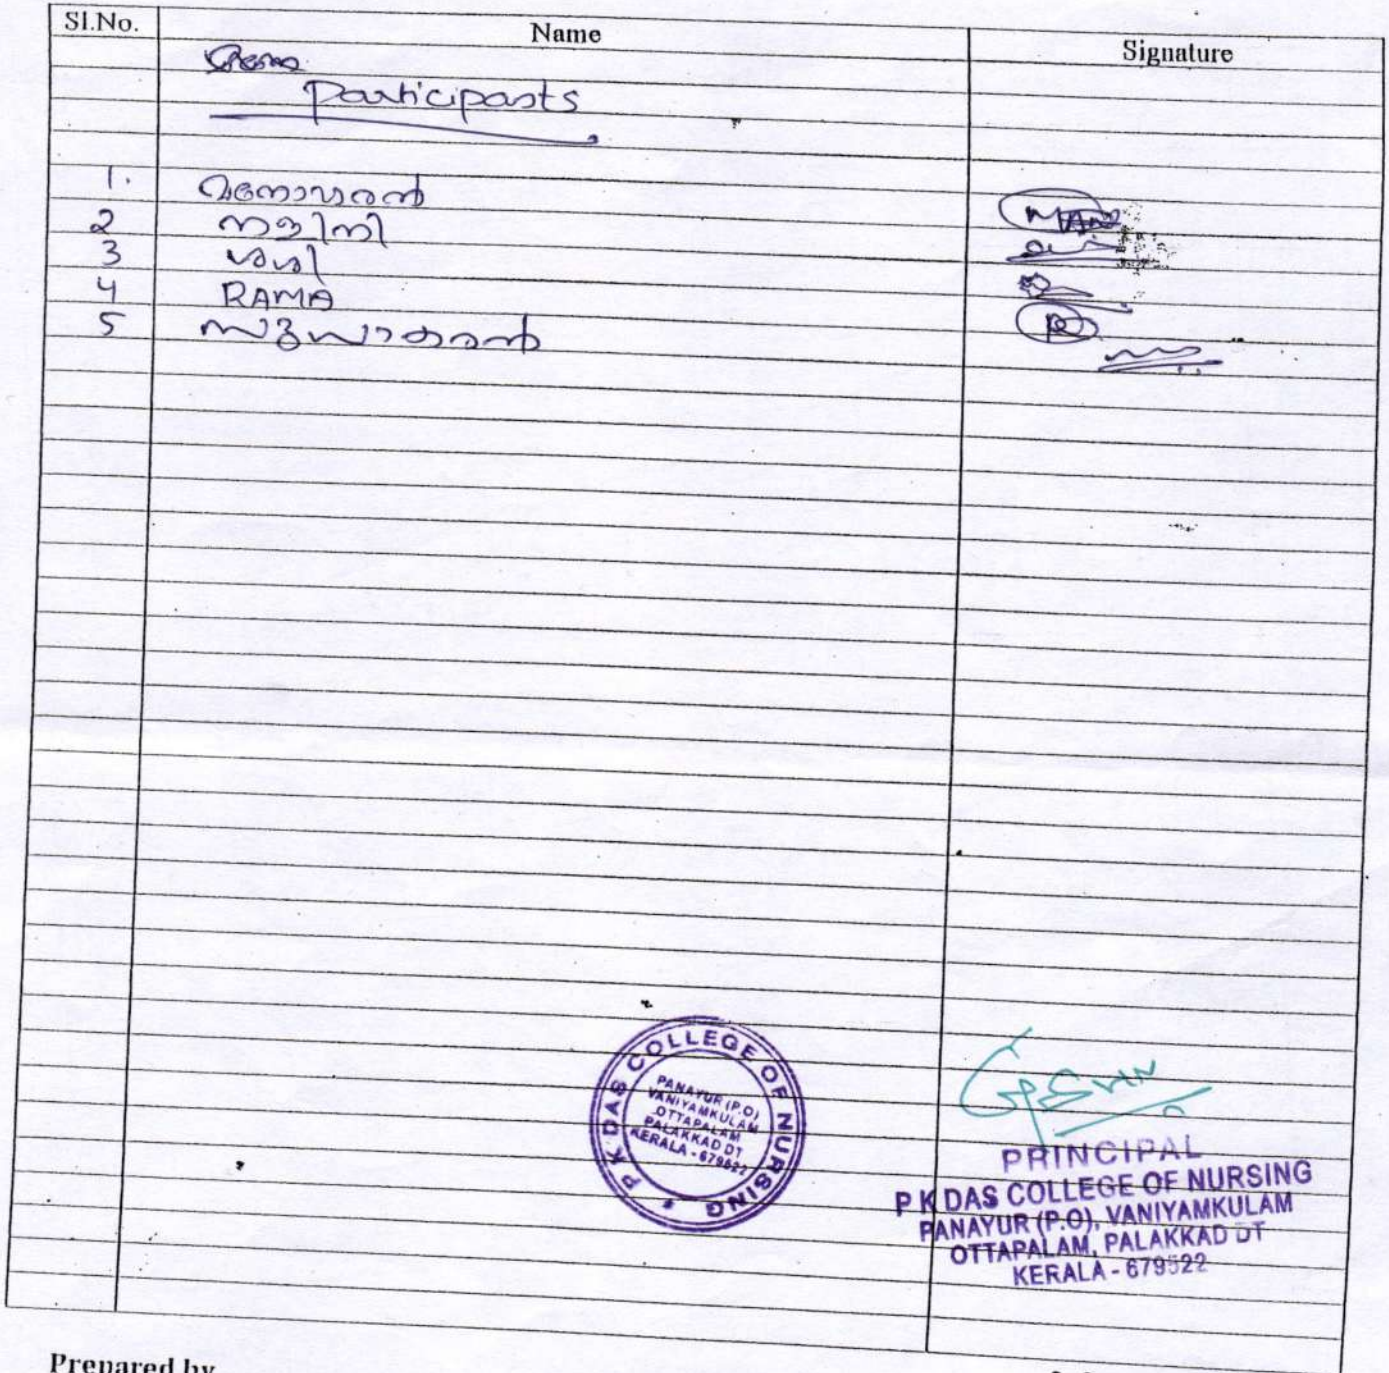 Sl.No. Name Signature
Participants
1. മനോഹരൻ
2 നളിനി
3 ശശി
4 RAMA
5 സുധാകരൻ
P K DAS COLLEGE OF NURSING
PANAYUR (P.O)
VANIYAMKULAM
OTTAPALAM
PALAKKAD DT
KERALA - 679522
PRINCIPAL
P K DAS COLLEGE OF NURSING
PANAYUR (P.O), VANIYAMKULAM
OTTAPALAM, PALAKKAD DT
KERALA - 679522
Prepared by